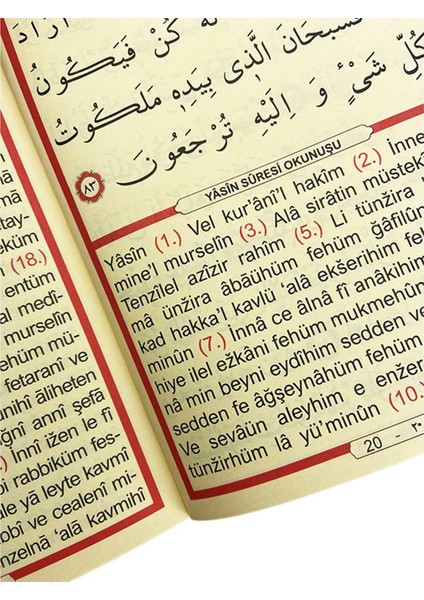 اَرَادَ
لَهُ كُنْ فَيَكُونُ
فَسُبْحَانَ الَّذٖى بِيَدِهٖ مَلَكُوتُ
كُلِّ شَىْءٍ وَ اِلَيْهِ تُرْجَعُونَ
٨٣
YÂSİN SÛRESİ OKUNUŞU
Yâsîn (1.) Vel kur'âni'l hakîm (2.) İnne
mine'l murselîn (3.) Alâ sirâtin müstekî
Tenzîlel azîzir rahîm (5.) Li tünžira
mâ ünžira âbâühüm fehüm ğâfilûn
kad hakka'l kavlü 'alâ ekšerihim fe
minûn (7.) İnnâ ce âlnâ fî anâkihim
hiye ilel ežkâni fehüm mukmehûn
nâ min beyni eydîhim sedden ve
sedden fe âğşeynâhüm fehüm
Ve sevâün aleyhim e enžer
tünžirhüm lâ yü'minûn (10.
20 -
tay-
eküm
(18.)
entüm
al medî-
murselîn
ehüm mü-
fetaranî ve
unihî âliheten
ığnî annî şefâ
) İnnî ižen le fî
i rabbiküm fes-
ale yâ leyte kavmî
bbî ve cealenî mi-
nzelnâ 'alâ kavmihî